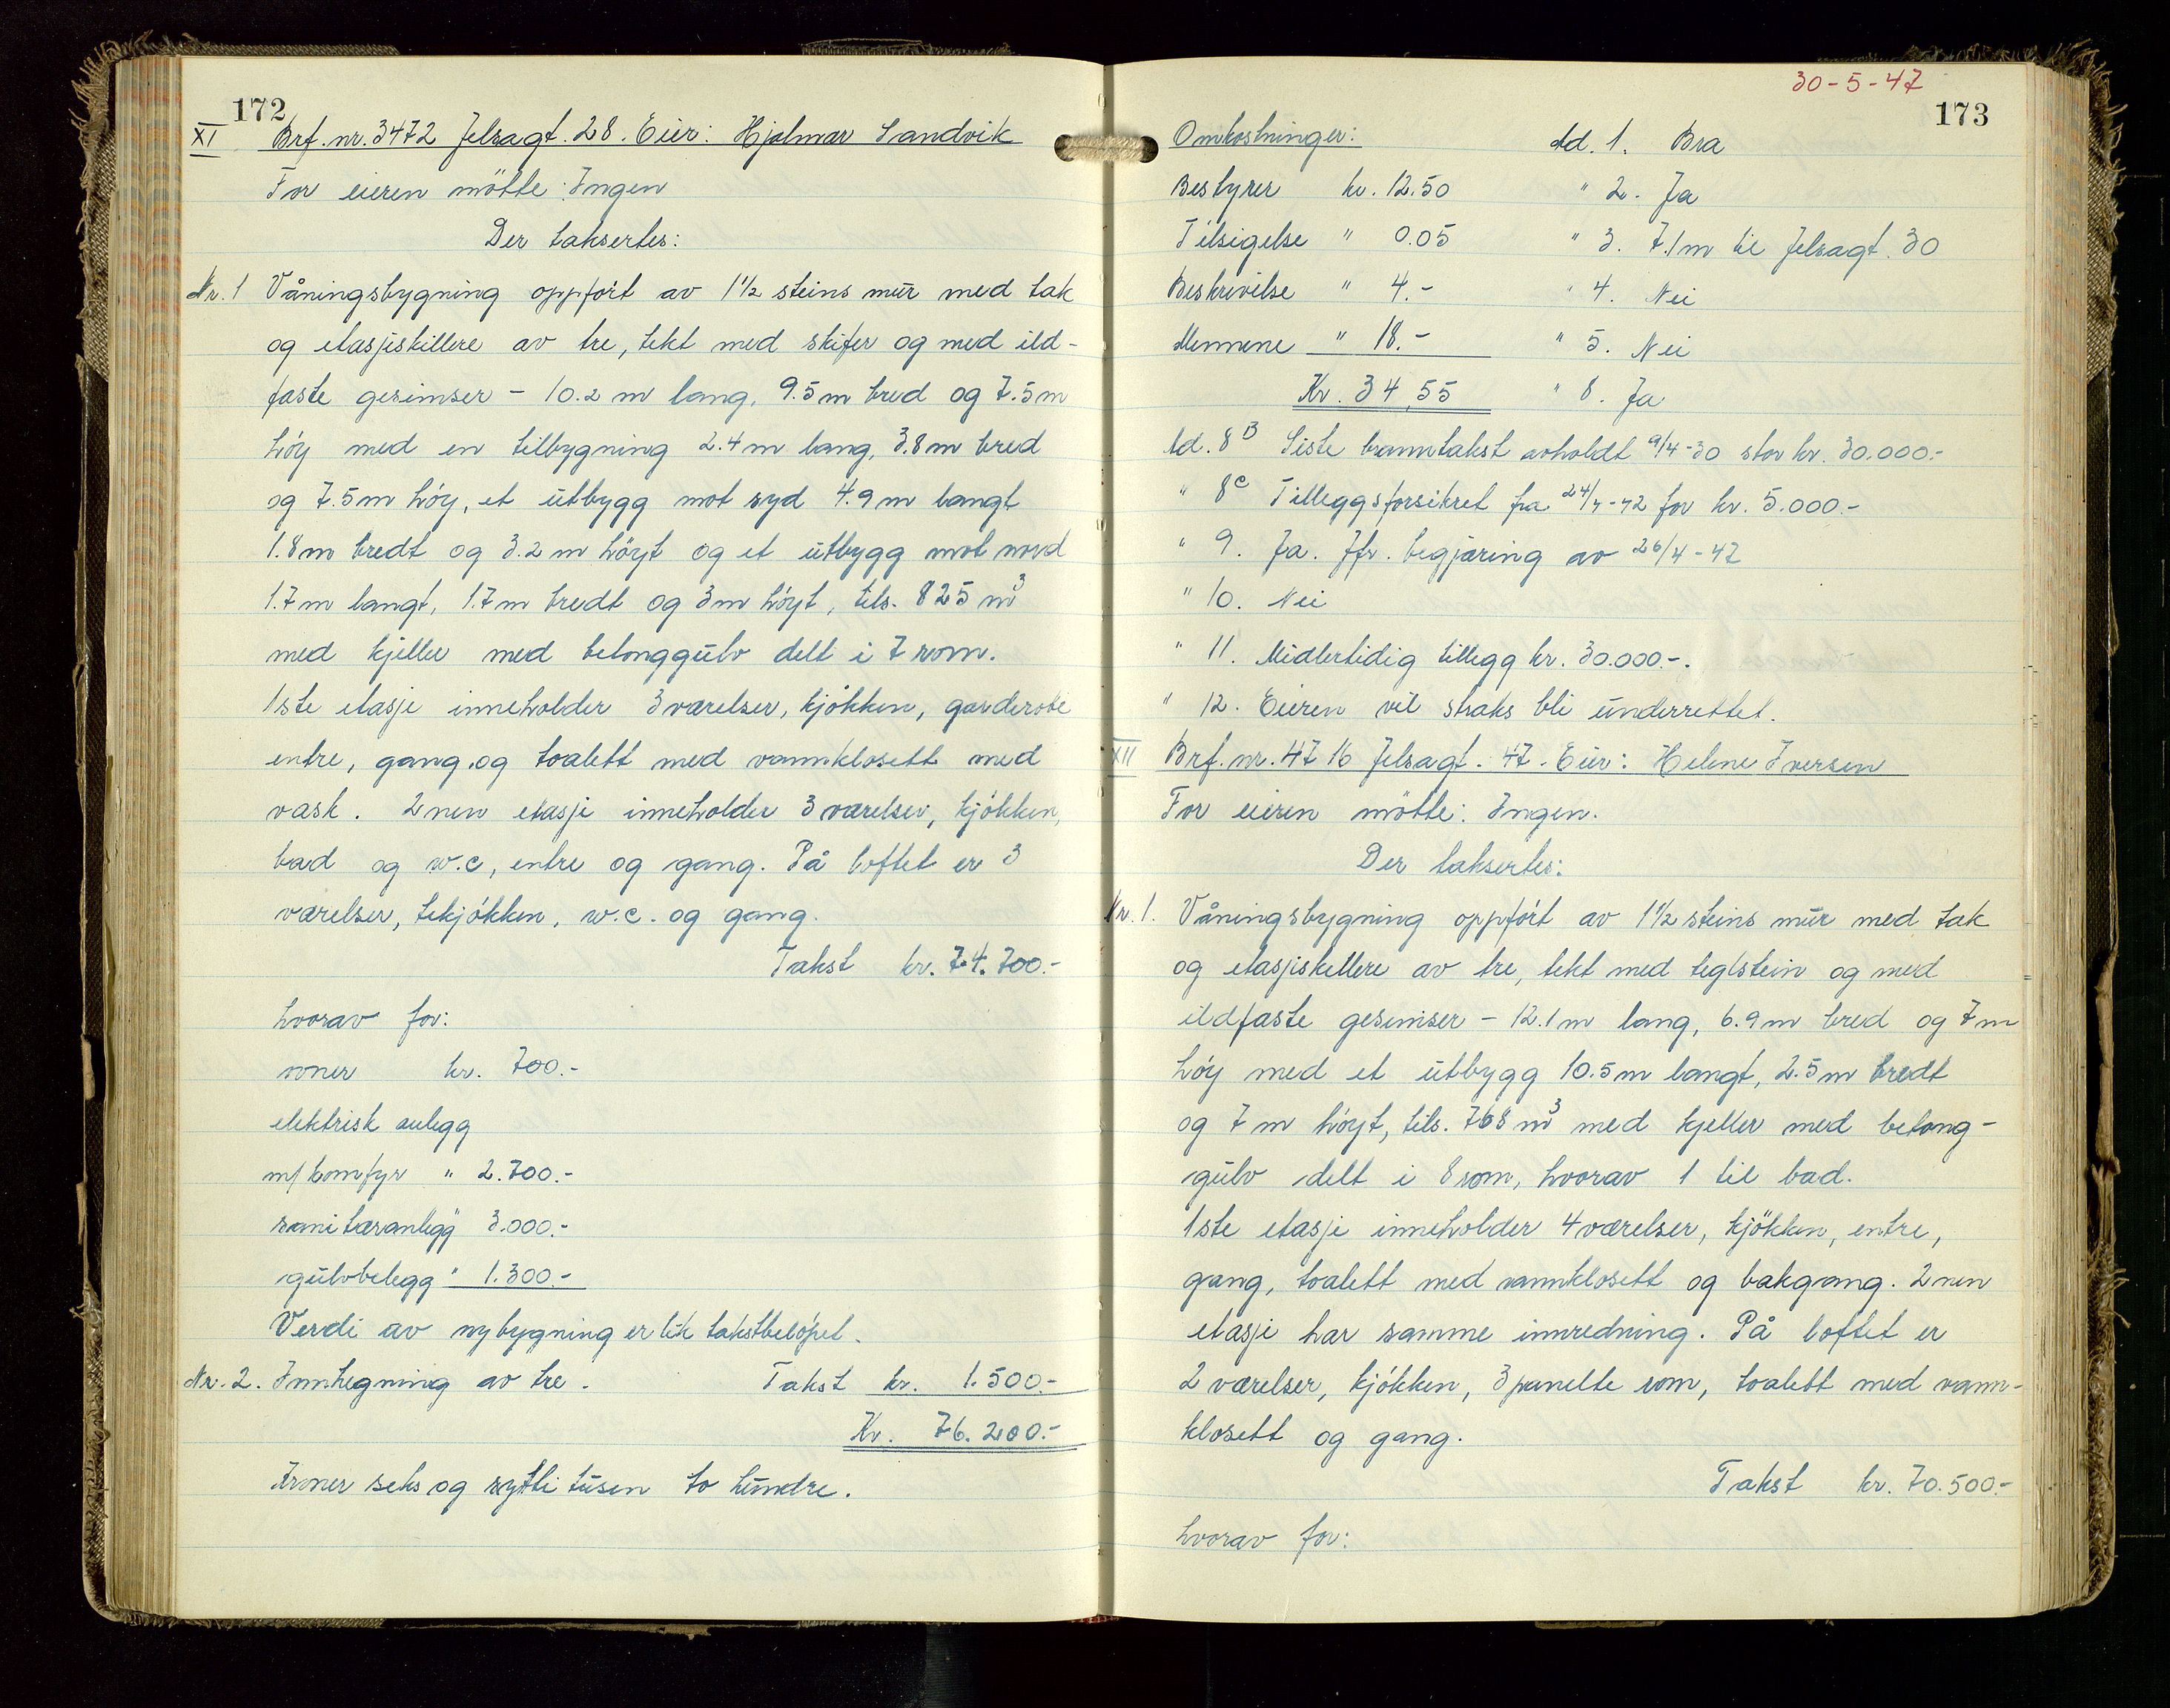 172
XI Brf. nr. 3472 Jelsagt. 28. Eier: Hjalmar Sandvik
For eieren mötte: Ingen
Der taksertes:
Nr. 1 Våningsbygning oppført av 1½ steins mur med tak
og etasjeskillere av tre, tekt med skifer og med ild-
faste gesimser - 10.2 m lang, 9.5 m bred og 7.5 m
høy med en tilbygning 2.4 m lang, 3.8 m bred
og 7.5 m høy, et utbygg mot syd 4.9 m langt
1.8 m bredt og 3.2 m höyt og et utbygg mot nord
1.7 m langt, 1.7 m bredt og 3 m høyt, tils. 825 m³
med kjeller med betonggulv delt i 7 rom.
1ste etasje inneholder 3 værelser, kjøkken, garderobe
entre, gang, og toalett med vannklosett med
vask. 2nen etasje inneholder 3 værelser, kjøkken,
bad og w.c, entre og gang. På loftet er 3
værelser, tekjøkken, w.c. og gang.
Takst kr. 74.700.-
hvorav for:
ovner kr. 700.-
elektrisk anlegg
m/komfyr " 2.700.-
sanitæranlegg 3.000.-
gulvbelegg " 1.300.-
Verdi av nybygning er lik takstbeløpet.
Nr. 2. Innhegning av tre. Takst kr. 1.500.-
Kr. 76.200.-
Kroner seks og sytti tusen to hundre.
30-5-47
173
Omkostninger: Ad. 1. Bra
Bestyrer kr. 12.50 " 2. Ja
Tilsigelse " 0.05 " 3. 7.1 m til Jelsagt. 30
Beskrivelse " 4.- " 4. Nei
Mennene " 18.- " 5. Nei
Kr. 34,55 " 8. Ja
Ad. 8 B Siste branntakst avholdt 9/4-30 stor kr. 30.000.-
" 8 c Tilleggsforsikret fra 24/4-42 for kr. 5.000.-
" 9. Ja. Jfr. begjæring av 26/4-47
" 10. Nei
" 11. Midlertidig tillegg kr. 30.000.-.
" 12. Eieren vil straks bli underrettet.
XII Brf. nr. 4716 Jelsagt. 47. Eier: Helene Iversen
For eieren mötte: Ingen.
Der taksertes:
Nr. 1. Våningsbygning oppført av 1½ steins mur med tak
og etasjeskillere av tre, tekt med teglstein og med
ildfaste gesimser - 12.1 m lang, 6.9 m bred og 7 m
høy med et utbygg 10.5 m langt, 2.5 m bredt
og 7 m høyt, tils. 768 m³ med kjeller med betong-
gulv delt i 8 rom, hvorav 1 til bad.
1ste etasje inneholder 4 værelser, kjökken, entre,
gang, toalett med vannklosett og bakgang. 2nen
etasje har samme innredning. På loftet er
2 værelser, kjøkken, 3 panelte rom, toalett med vann-
klosett og gang.
Takst kr. 70.500.-
hvorav for: